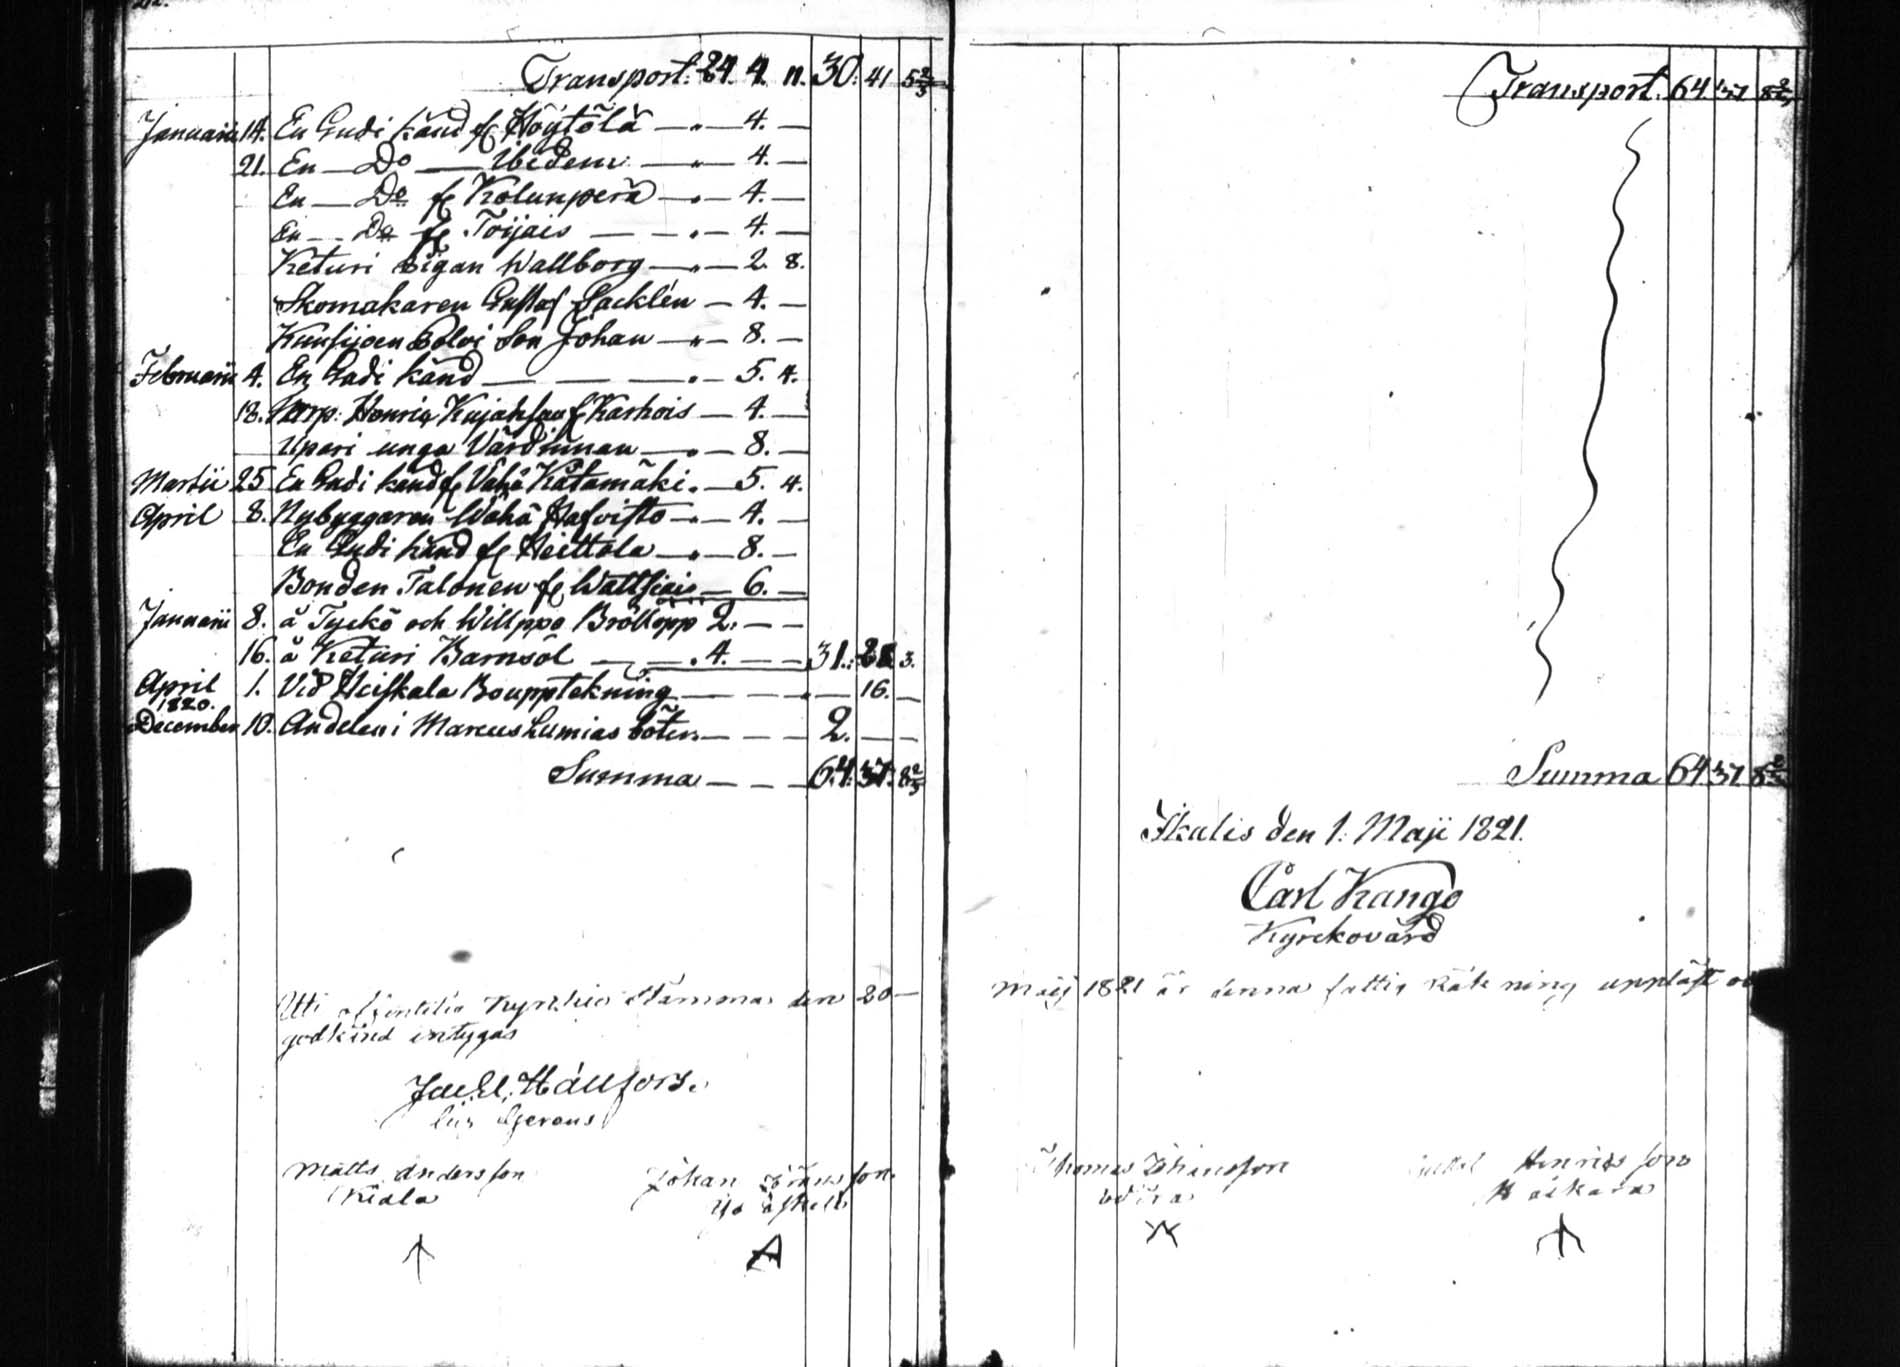 Transport. 24. 4. 11. 30. 41 5 2/3
Januarii 14. En Gudi känd fr Höytölä — " — 4. —
21. En — Do — Ibidem — " — 4. —
En — Do fr Kolunperä — " — 4. —
En — Do fr Toijais — — " — 4. —
Keturi Pigan Wallborg — " — 2. 8.
Skomakaren Gustaf Packlén — 4. —
Kuusijoen Polvi Son Johan — " — 8. —
Februarii 4. En Gudi känd — — — " — 5. 4.
18. Torp: Henric Kujahsau fr Karhois — 4. —
Upari unga Värdinnan — " — 8. —
Martii 25 En Gudi känd fr Vähä Katamäki. — 5. 4.
April 8. Nybyggaren Wähä Hafvisto — " — 4. —
En Gudi känd fr Heittola — " — 8. —
Bonden Talonen fr Wattjais — 6. —
Januarii 8. å Tyckö och Willppo Bröllopp 2. — —
16. å Keturi Barnsöl — — . 4. — — 31. 3.
April 1. Vid Heiskala Boupptekning — — — " — 16. —
1820.
December 10. Andelen i Marcus Lumias böter. — — — 2. — —
Summa — — — 64. 37. 8 2/3
Uti offentelig Kyrkio Stämma den 20 —
godkänd intygas
Hällfors.
Matts Andersson
Johan Johansson
Transport. 64 37 8 2/3
Summa 64 37. 8 2/3
Ikalis den 1. Maji 1821.
Carl Kango
Kyrckovärd
Maij 1821 är denna fattig Räkning uppläst oc
Thomas Johansson
Henricsson